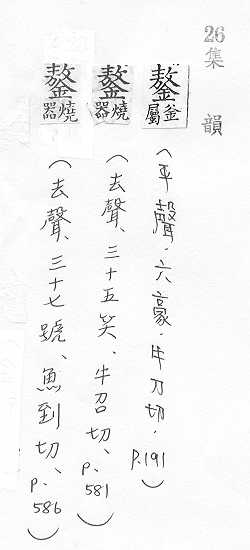 26
集韻
鏊釜屬(平聲、六豪、牛刀切、p.191)
鏊燒器(去聲、三十五笑、牛召切、p.581)
鏊燒器(去聲、三十七號、魚到切、p.586)